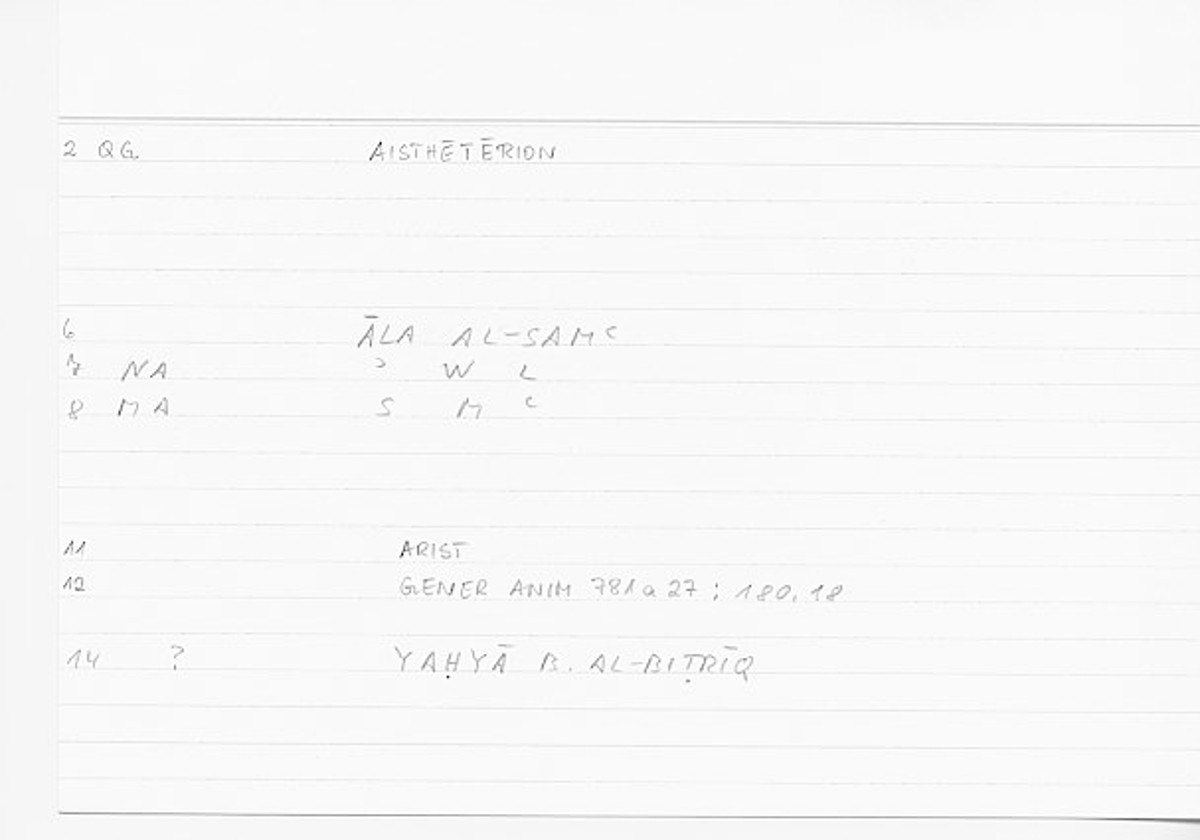 2 QG AISTHĒTĒRION
6 ĀLA AL-SAMʿ
7 NA ʾ W L
8 MA S M ʿ
11 ARIST
12 GENER ANIM 781a27 ; 180,18
14 ? YAḤYĀ B. AL-BIṬRĪQ